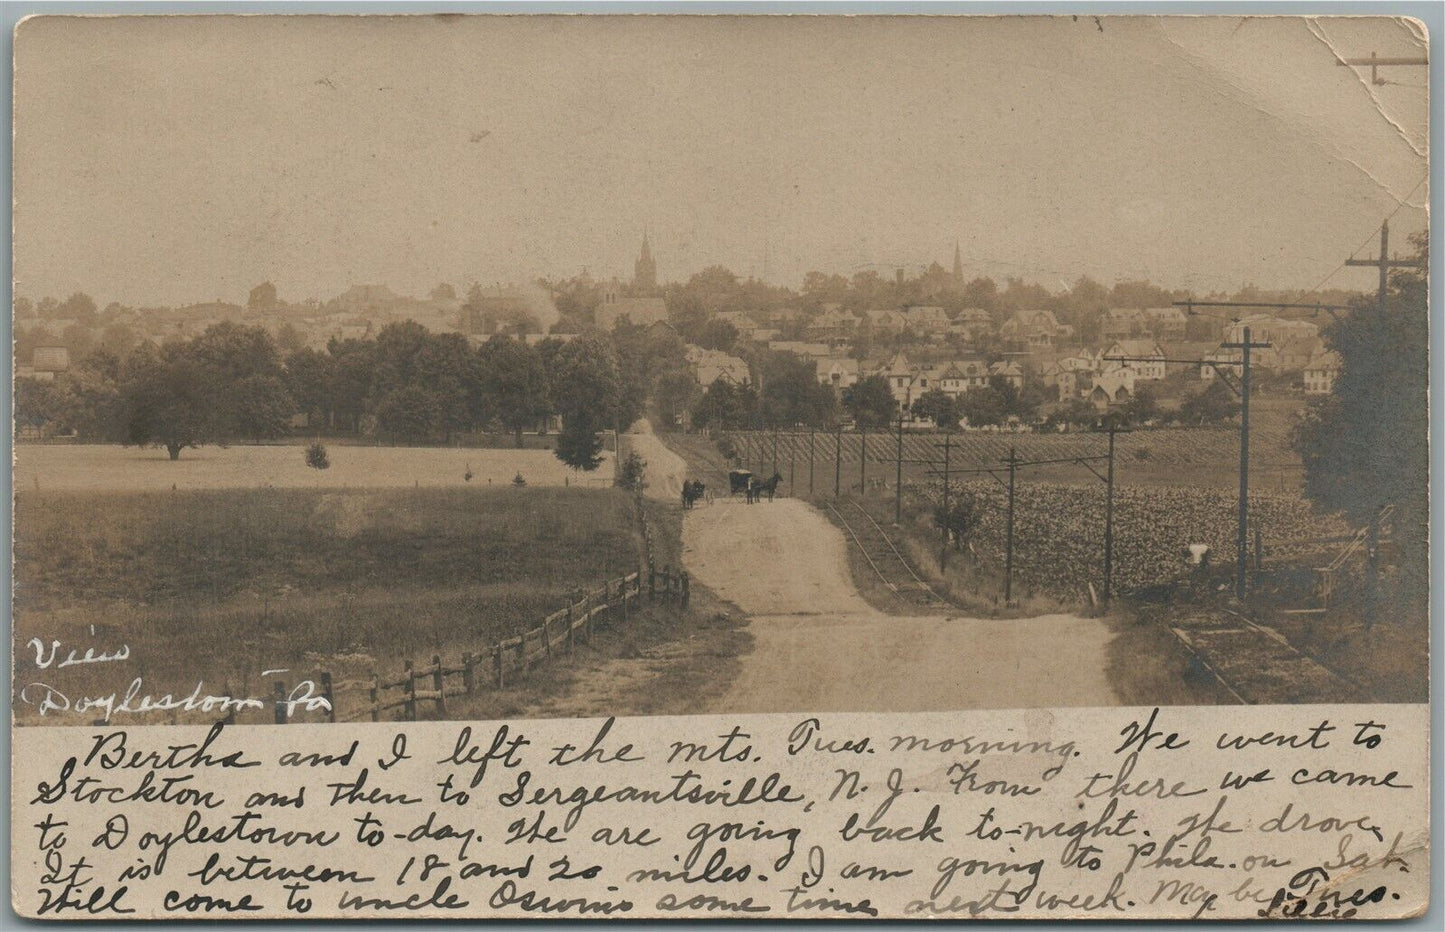 View
Doylestown Pa
Bertha and I left the mts. Tues. morning. We went to
Stockton and then to Sergeantsville, N. J. From there we came
to Doylestown to-day. We are going back to-night. We drove.
It is between 18 and 20 miles. I am going to Phila. on Sat.
Will come to uncle Oswins some time next week. May be Tues.
Lillie